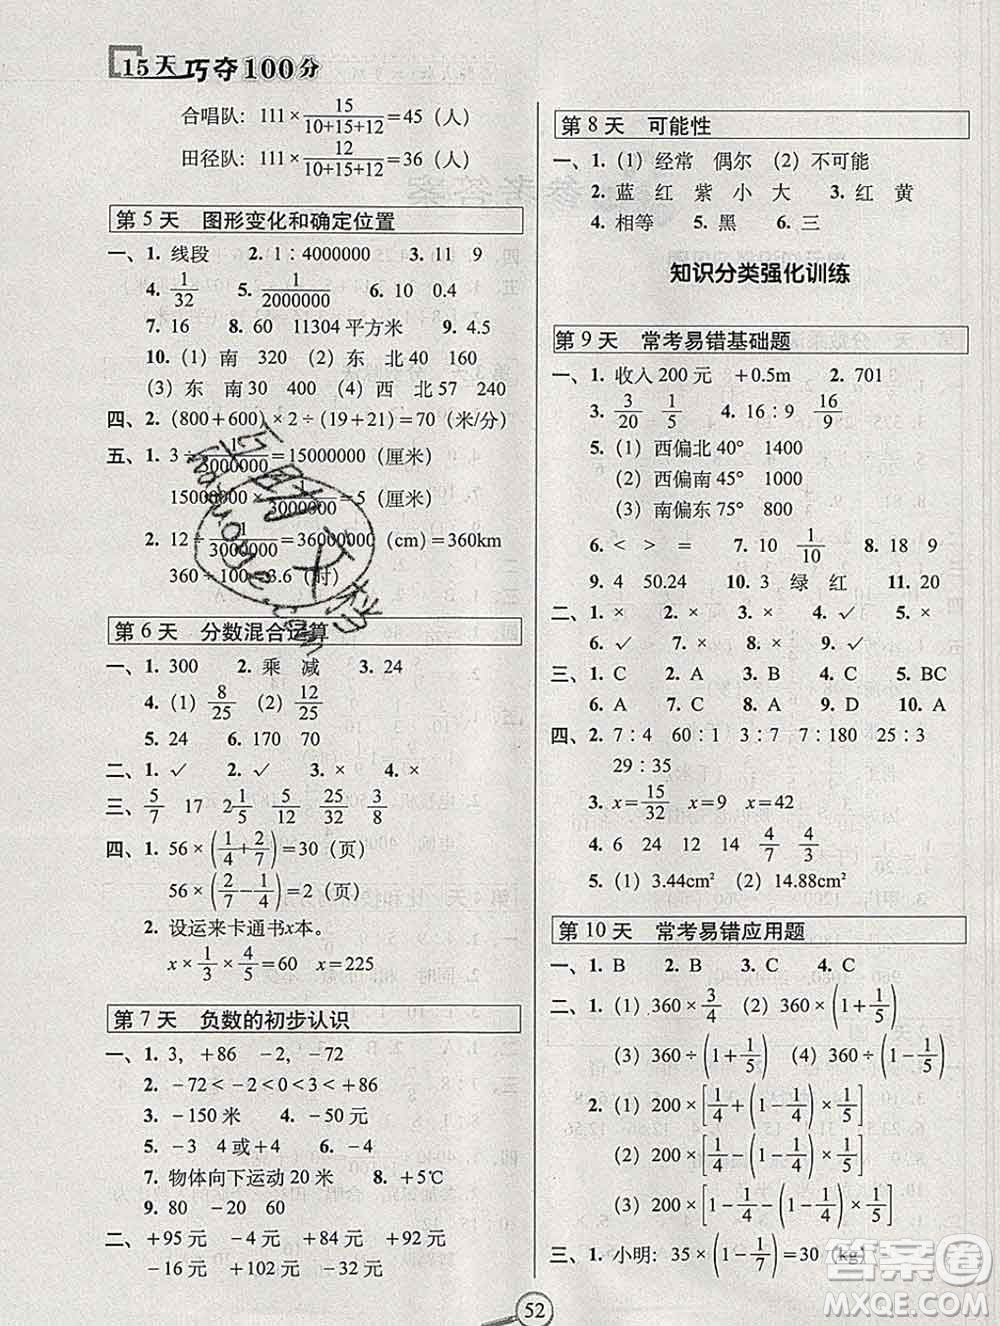 15天巧夺100分
合唱队: 111×15/(10+15+12)=45(人)
田径队: 111×12/(10+15+12)=36(人)
第5天 图形变化和确定位置
一、1. 线段 2. 1:4000000 3. 11 9
4. 1/32 5. 1/2000000 6. 10 0.4
7. 16 8. 60 11304平方米 9. 4.5
10. (1) 南 320 (2) 东 北40 160
(3) 东 南30 400 (4) 西 北57 240
四、2. (800+600)×2÷(19+21)=70(米/分)
五、1. 3÷1/3000000=15000000(厘米)
15000000×1/3000000=5(厘米)
2. 12÷1/3000000=36000000(cm)=360km
360÷100=3.6(时)
第6天 分数混合运算
一、1. 300 2. 乘 减 3. 24
4. (1) 8/25 (2) 12/25
5. 24 6. 170 70
二、1. ✓ 2. ✓ 3. × 4. ×
三、5/7 17 2 1/2 5/12 25/32 3/8
四、1. 56×(1/4+2/7)=30(页)
56×(2/7-1/4)=2(页)
2. 设运来卡通书x本。
x×1/3×4/5=60 x=225
第7天 负数的初步认识
一、1. 3, +86 -2, -72
2. -72<-2<0<3<+86
3. -150米 4. -50元
5. -3 4或+4 6. -4
7. 物体向下运动20米 8. +5℃
9. 80 -20 60
二、+95元 -4元 +38元 +110元
-16元 +120元 -350元
第8天 可能性
一、1. (1) 经常 偶尔 (2) 不可能
2. 蓝 红 紫 小 大 3. 红 黄
4. 相等 5. 黑 6. 三
知识分类强化训练
第9天 常考易错基础题
一、1. 收入200元 +0.5m 2. 701
3. 3/20 1/5 4. 16:9 16/9
5. (1) 西偏北40° 1400
(2) 西偏南45° 1000
(3) 南偏东75° 800
6. < > = 7. 10 1/10 8. 18 9
9. 4 50.24 10. 3 绿 红 11. 20
二、1. × 2. × 3. × 4. ✓ 5. ×
6. ✓ 7. × 8. × 9. ✓ 10. ✓
三、1. C 2. A 3. B 4. C 5. C
6. A 7. C 8. A 9. D 10. A
四、2. 7:4 60:1 3:7 7:180 25:3
29:35
3. x=15/32 x=9 x=42
4. 6 24 12 14 4/7 4/3
5. (1) 3.44cm² (2) 14.88cm²
第10天 常考易错应用题
一、1. B 2. B 3. C 4. C
二、1. (1) 360×3/4 (2) 360×(1+1/5)
(3) 360÷(1+1/5) (4) 360÷(1-1/5)
2. (1) 200×[1/4+(1-1/4)×1/5]
(2) 200×[1/4-(1-1/4)×1/5]
(3) 200×[1-1/4-(1-1/4)×1/5]
三、1. 小明: 35×(1-1/7)=30(kg)
52
答案圈
MXQE.COM